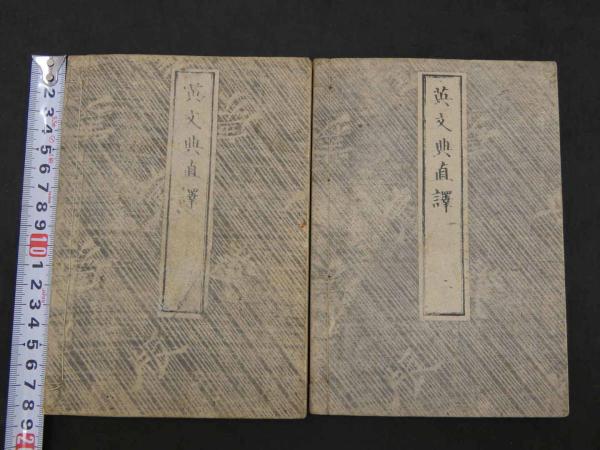 英文典直譯
英文典直譯
2 3 4 5 6 7 8 9 10 1 2 3 4 5 6 7 8 9 2